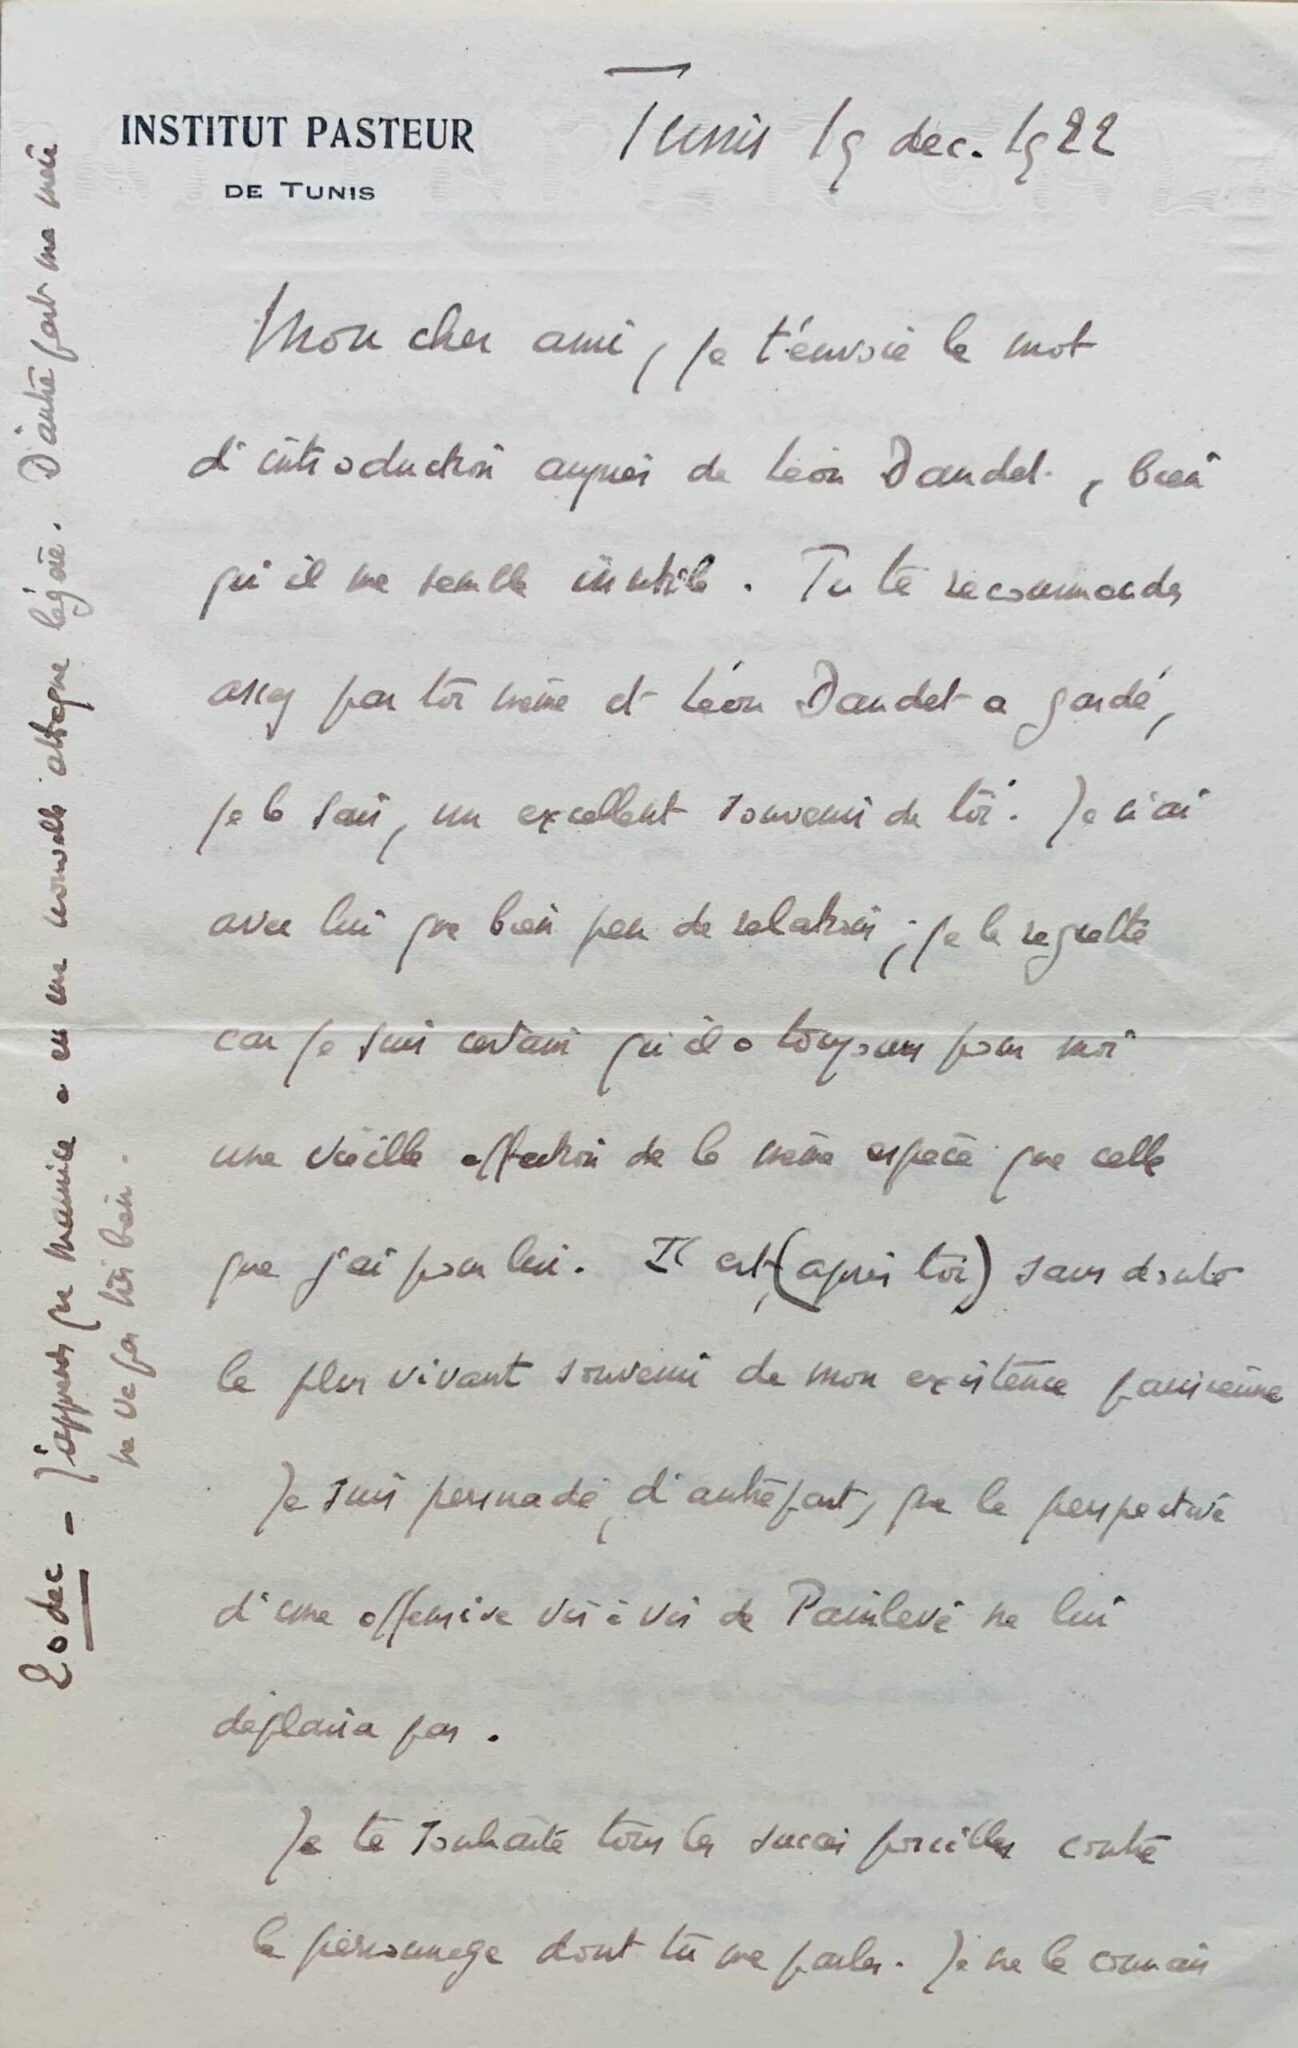 INSTITUT PASTEUR
DE TUNIS
Tunis 19 dec. 1922
Mon cher ami, je t'envoie le mot
d'introduction auprès de Léon Daudet, bien
qu'il me semble inutile. Tu te recommandes
assez par toi même et Léon Daudet a gardé,
je le sais, un excellent souvenir de toi. Je n'ai
avec lui que bien peu de relations; je le regrette
car je suis certain qu'il a toujours pour moi
une vieille affection de la même espèce que celle
que j'ai pour lui. Il est, (après toi) sans doute
le plus vivant souvenir de mon existence parisienne
Je suis persuadé, d'autre part, que la perspective
d'une offensive vis à vis de Painlevé ne lui
déplaira pas.
Je te souhaite tous les succès possibles contre
le personnage dont tu me parles. Je ne le connais
20 dec - J'apprends que Maurice a eu une nouvelle attaque légère. D'autre part ma mère
ne va pas très bien.